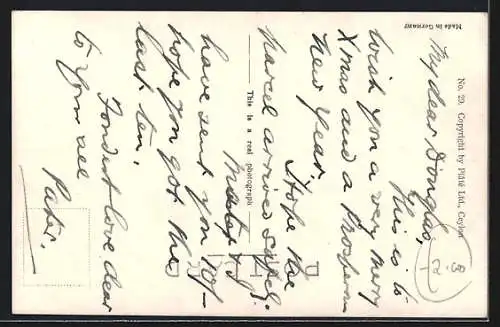 No. 29. Copyright by Plâté Ltd., Ceylon
Made in Germany
My dear Douglas,
This is to
Wish you a very Merry
Xmas and a Prosperous
New Year.
Hope the
parcel arrived safely.
This is a real photograph
Mater & I
have sent you 10/-
hope you got the
last ten.
Fondest love dear
to you all
Pater.